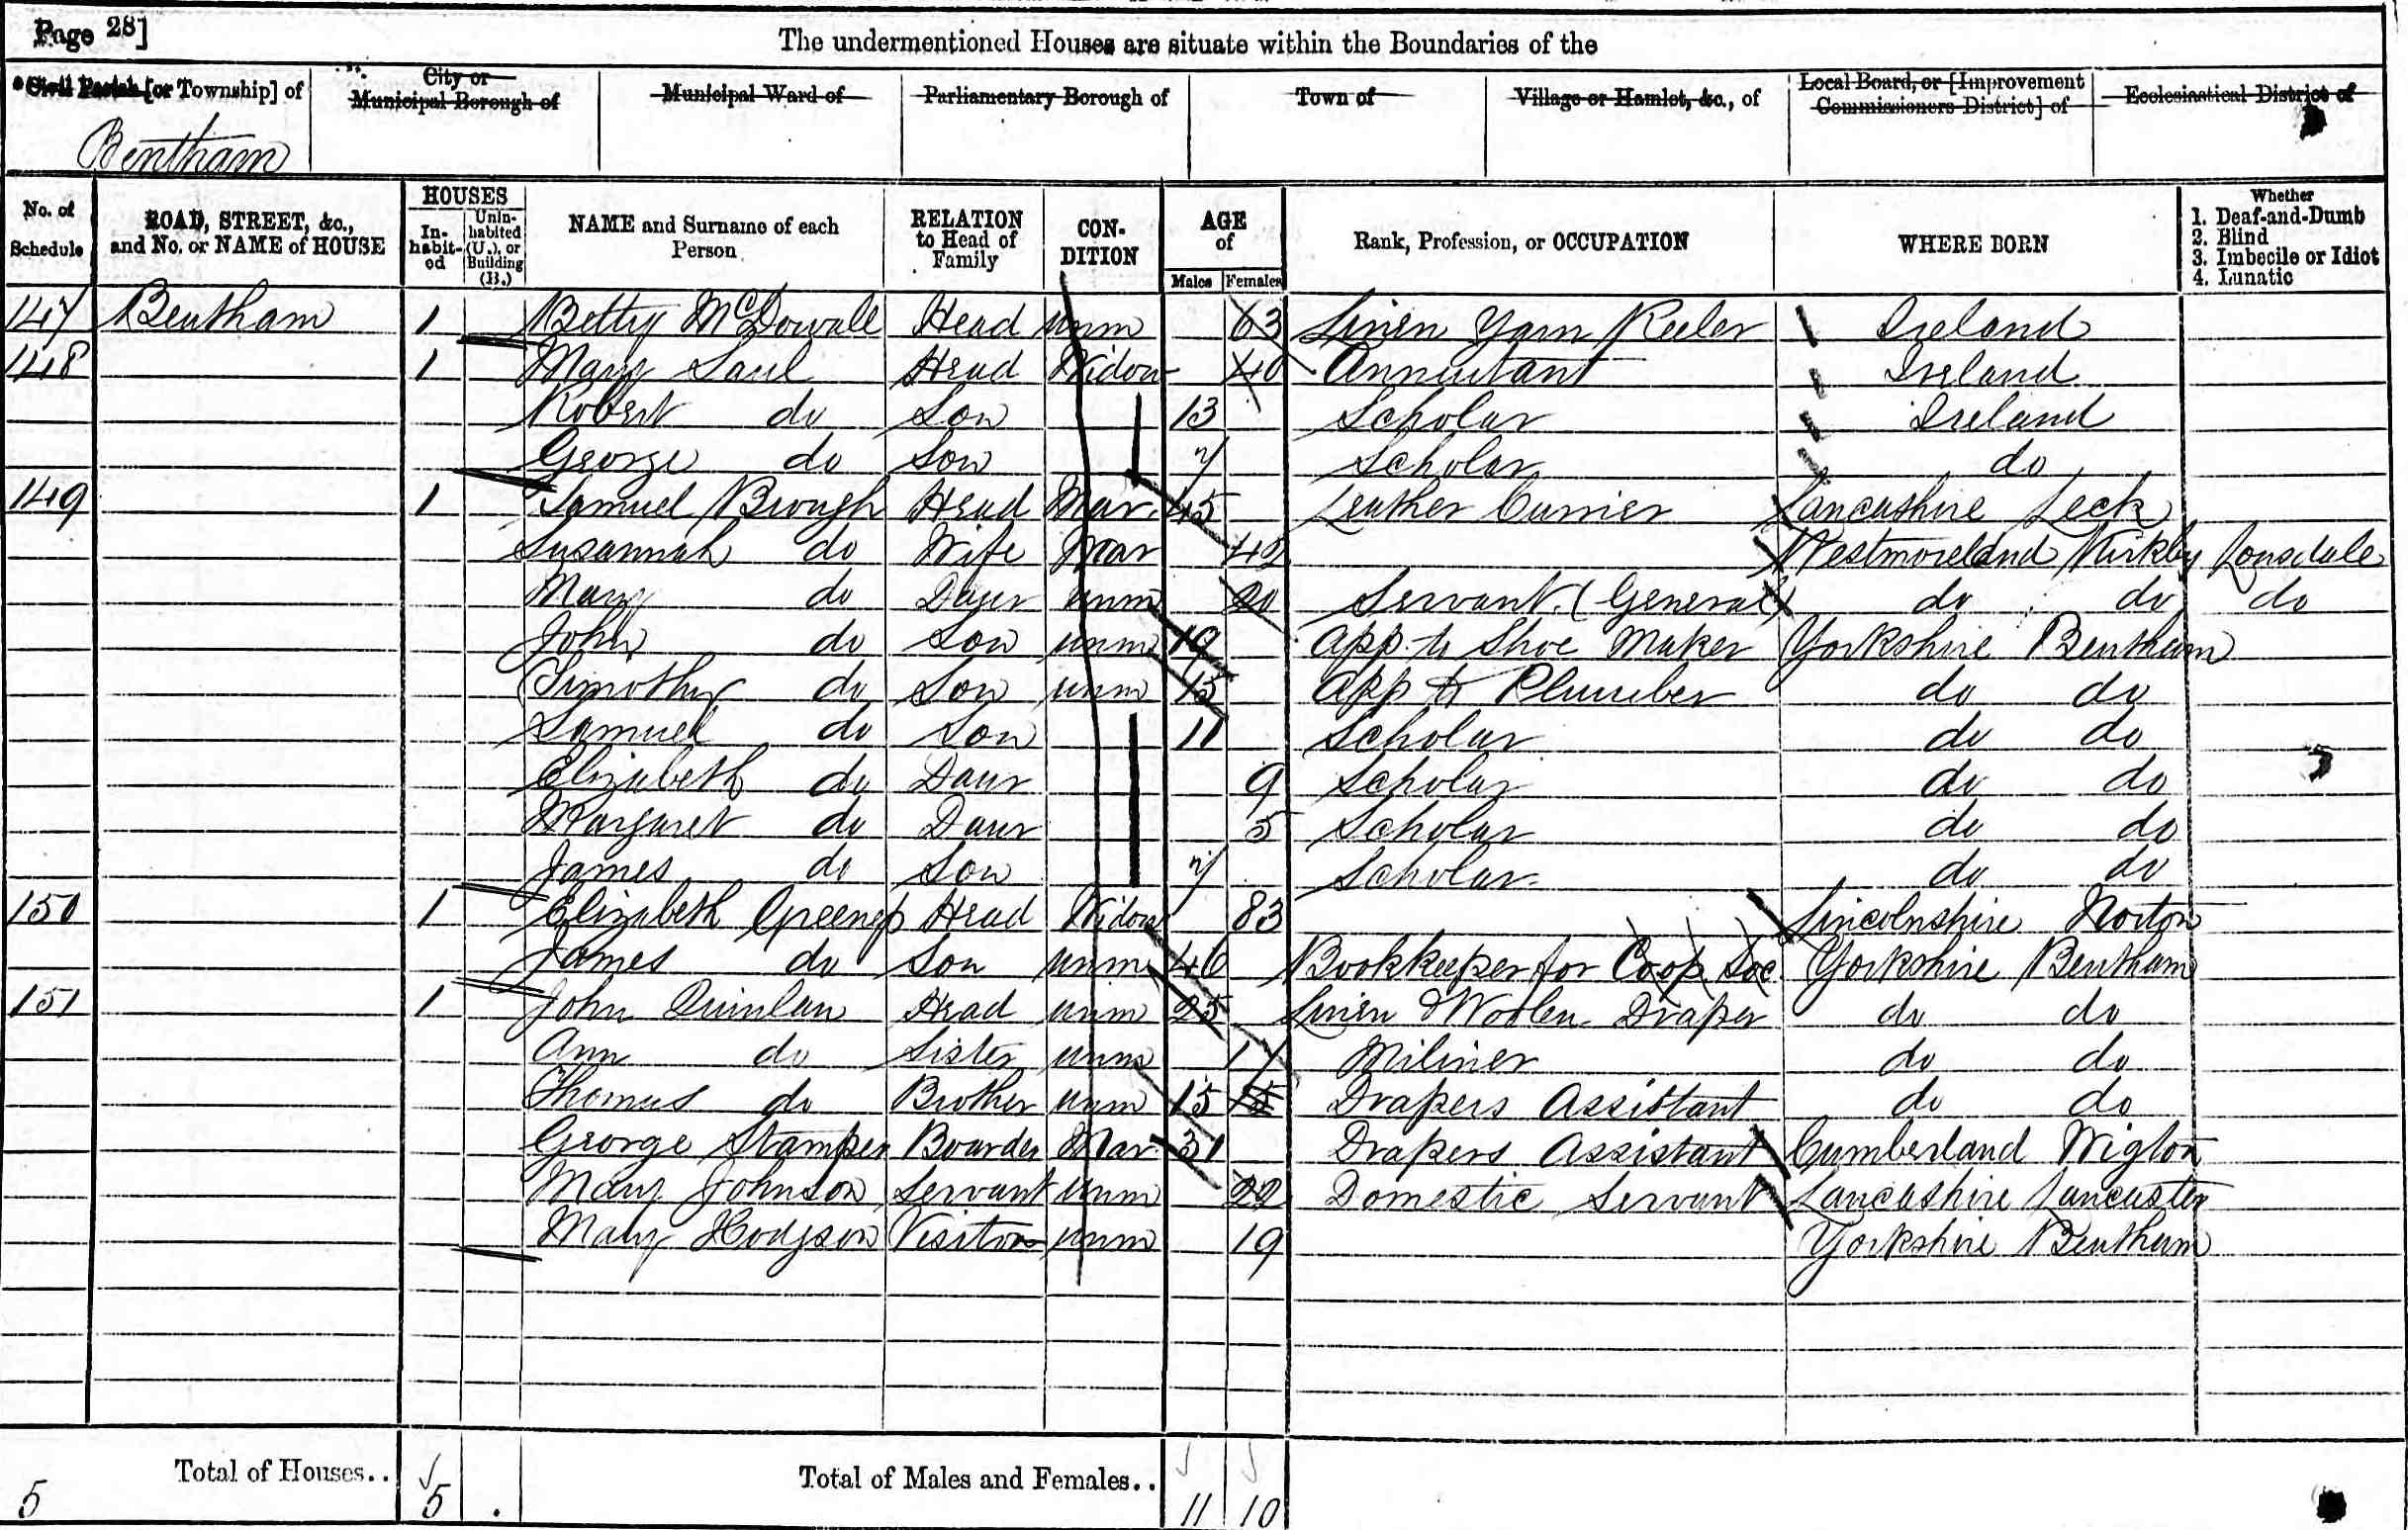 Page 28]
The undermentioned Houses are situate within the Boundaries of the
Civil Parish [or Township] of
City or Municipal Borough of
Municipal Ward of
Parliamentary Borough of
Town of
Village or Hamlet, &c., of
Local Board, or [Improvement Commissioners District] of
Ecclesiastical District of
Bentham
No. of Schedule
ROAD, STREET, &c., and No. or NAME of HOUSE
HOUSES
In-habit-ed
Unin-habited (U.), or Building (B.)
NAME and Surname of each Person
RELATION to Head of Family
CON-DITION
AGE of
Males
Females
Rank, Profession, or OCCUPATION
WHERE BORN
Whether
1. Deaf-and-Dumb
2. Blind
3. Imbecile or Idiot
4. Lunatic
147 Bentham 1 Betty McDowall Head unm 63 Linen Yarn Reeler Ireland
148 1 Mary Saul Head Widow 40 Annuitant Ireland
Robert do Son 13 Scholar Ireland
George do Son 7 Scholar do
149 1 Samuel Brough Head Mar. 45 Leather Currier Lancashire Leck
Susannah do Wife Mar 42 Westmoreland Kirkby Lonsdale
Mary do Daur unm 20 Servant (General) do do do
John do Son unm App. to Shoe Maker Yorkshire Bentham
Timothy do Son unm 15 App to Plumber do do
Samuel do Son 11 Scholar do do
Elizabeth do Daur 9 Scholar do do
Margaret do Daur 5 Scholar do do
James do Son 7 Scholar do do
150 1 Elizabeth Greenep Head Widow 83 Lincolnshire Norton
James do Son unm 46 Bookkeeper for Coop Soc. Yorkshire Bentham
151 1 John Quinlan Head unm 25 Linen & Woolen Draper do do
Ann do Sister unm Miliner do do
Thomas do Brother unm 15 15 Drapers Assistant do do
George Stamper Boarder Mar. 31 Drapers Assistant Cumberland Wigton
Mary Johnson Servant unm 22 Domestic Servant Lancashire Lancaster
Mary Hodgson Visitor unm 19 Yorkshire Bentham
5 Total of Houses.. 5 Total of Males and Females.. 11 10